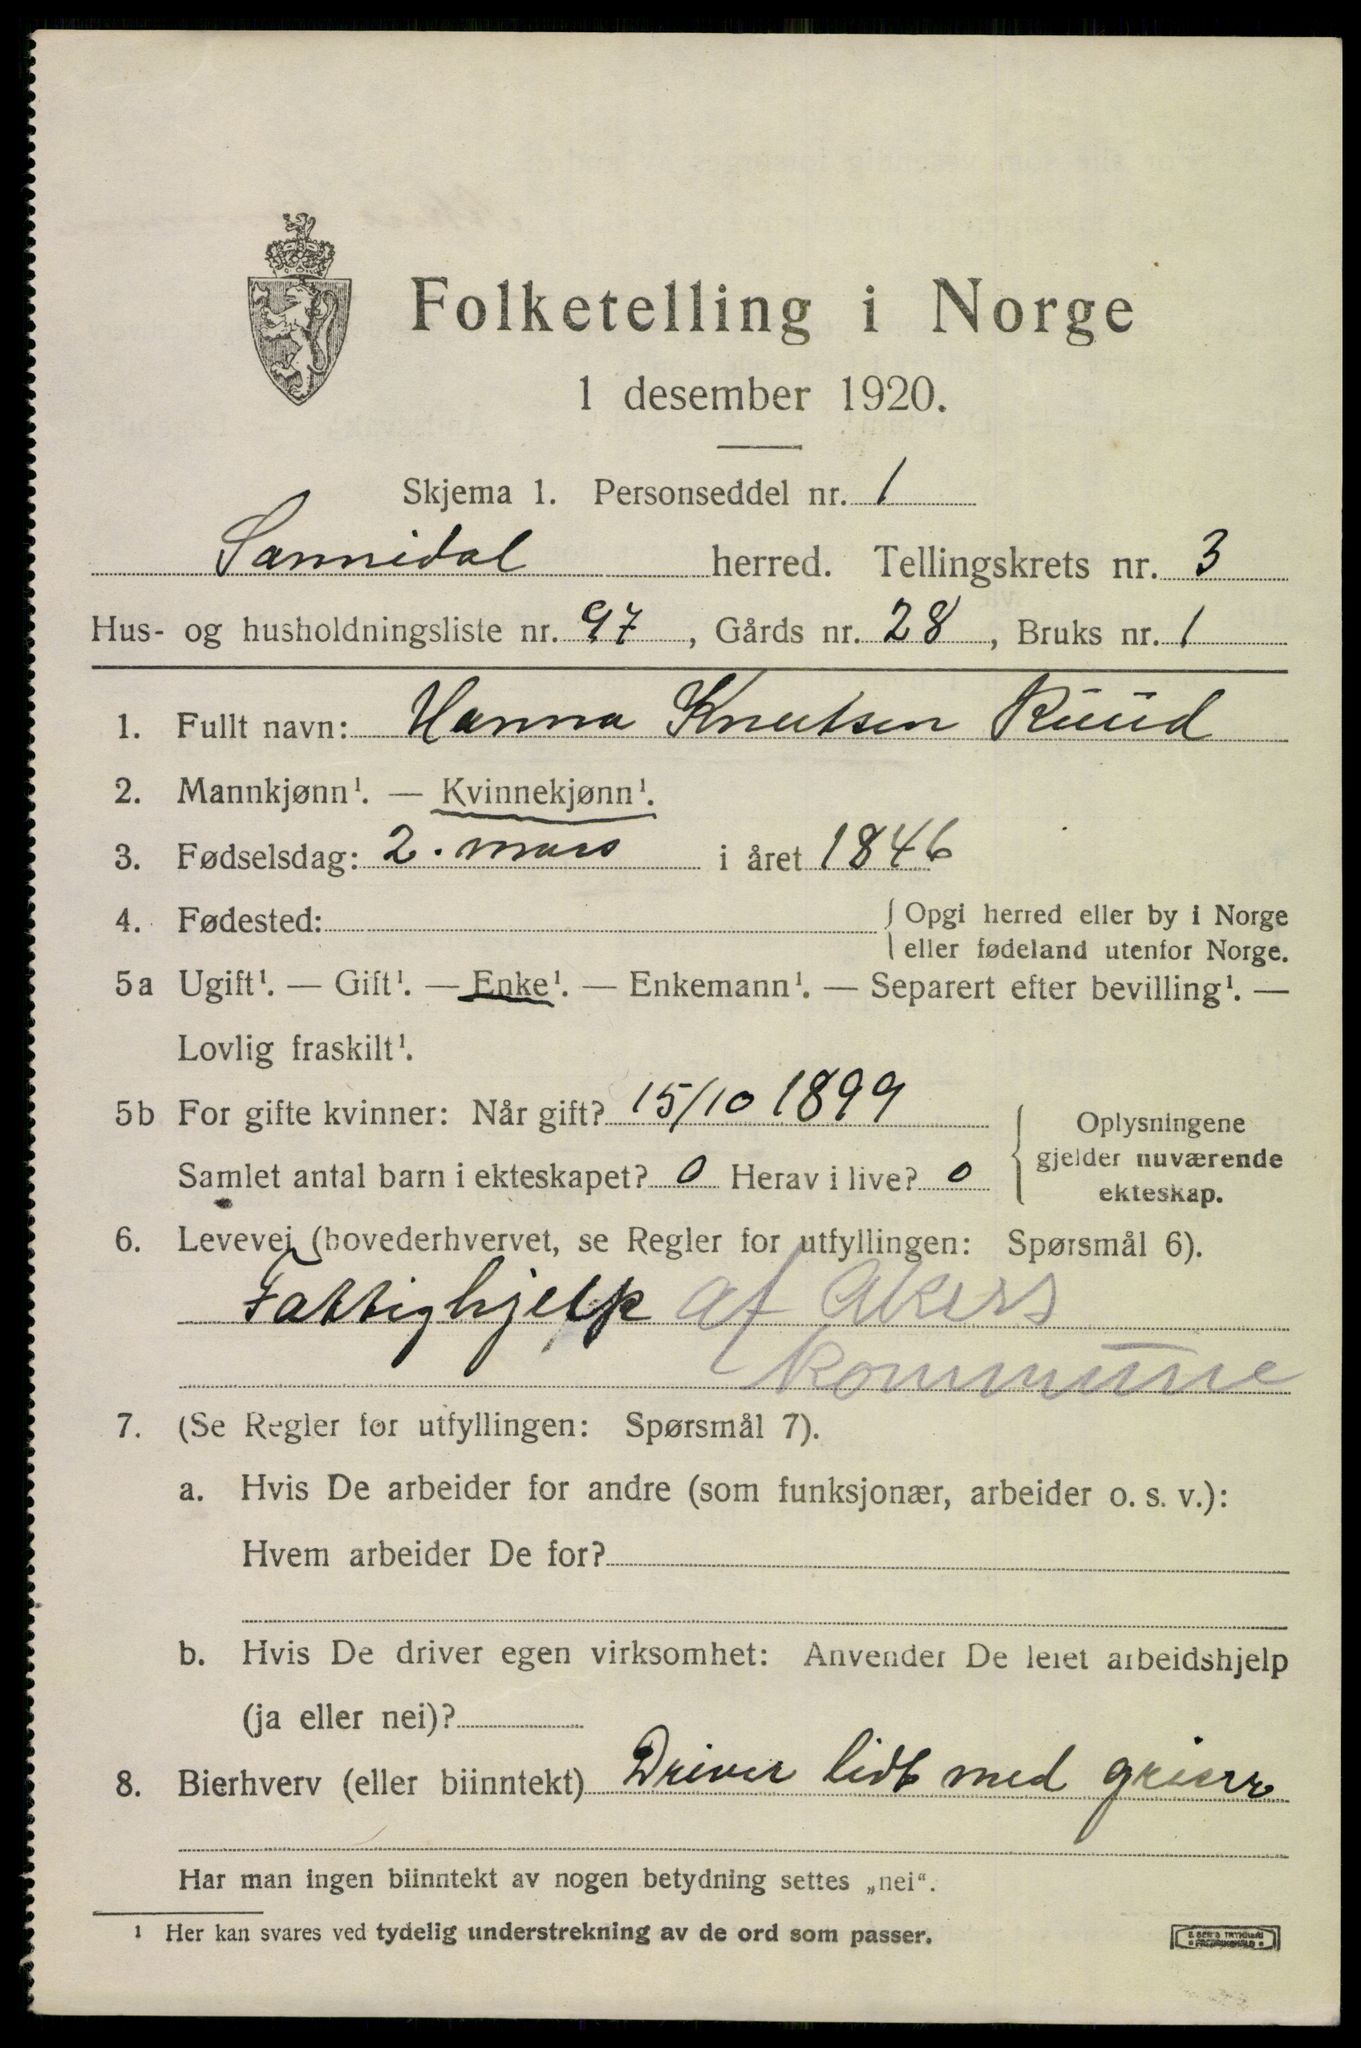 Folketelling i Norge
1 desember 1920.
Skjema 1. Personseddel nr. 1
Sannidal herred. Tellingskrets nr. 3
Hus- og husholdningsliste nr. 97, Gårds nr. 28, Bruks nr. 1
1. Fullt navn: Hanna Knutsen Ruud
2. Mannkjønn¹. — Kvinnekjønn¹.
3. Fødselsdag: 2. mars i året 1846
4. Fødested: Opgi herred eller by i Norge
eller fødeland utenfor Norge.
5a Ugift¹. — Gift¹. — Enke¹. — Enkemann¹. — Separert efter bevilling¹. —
Lovlig fraskilt¹.
5b For gifte kvinner: Når gift? 15/10 1899
Samlet antal barn i ekteskapet? 0 Herav i live? 0
Oplysningene
gjelder nuværende
ekteskap.
6. Levevei (hovederhvervet, se Regler for utfyllingen: Spørsmål 6).
Fattighjelp af Akers
kommune
7. (Se Regler for utfyllingen: Spørsmål 7).
a. Hvis De arbeider for andre (som funksjonær, arbeider o. s. v.):
Hvem arbeider De for?
b. Hvis De driver egen virksomhet: Anvender De leiet arbeidshjelp
(ja eller nei)?
8. Bierhverv (eller biinntekt) Driver lidt med
Har man ingen biinntekt av nogen betydning settes „nei“.
¹ Her kan svares ved tydelig understrekning av de ord som passer.